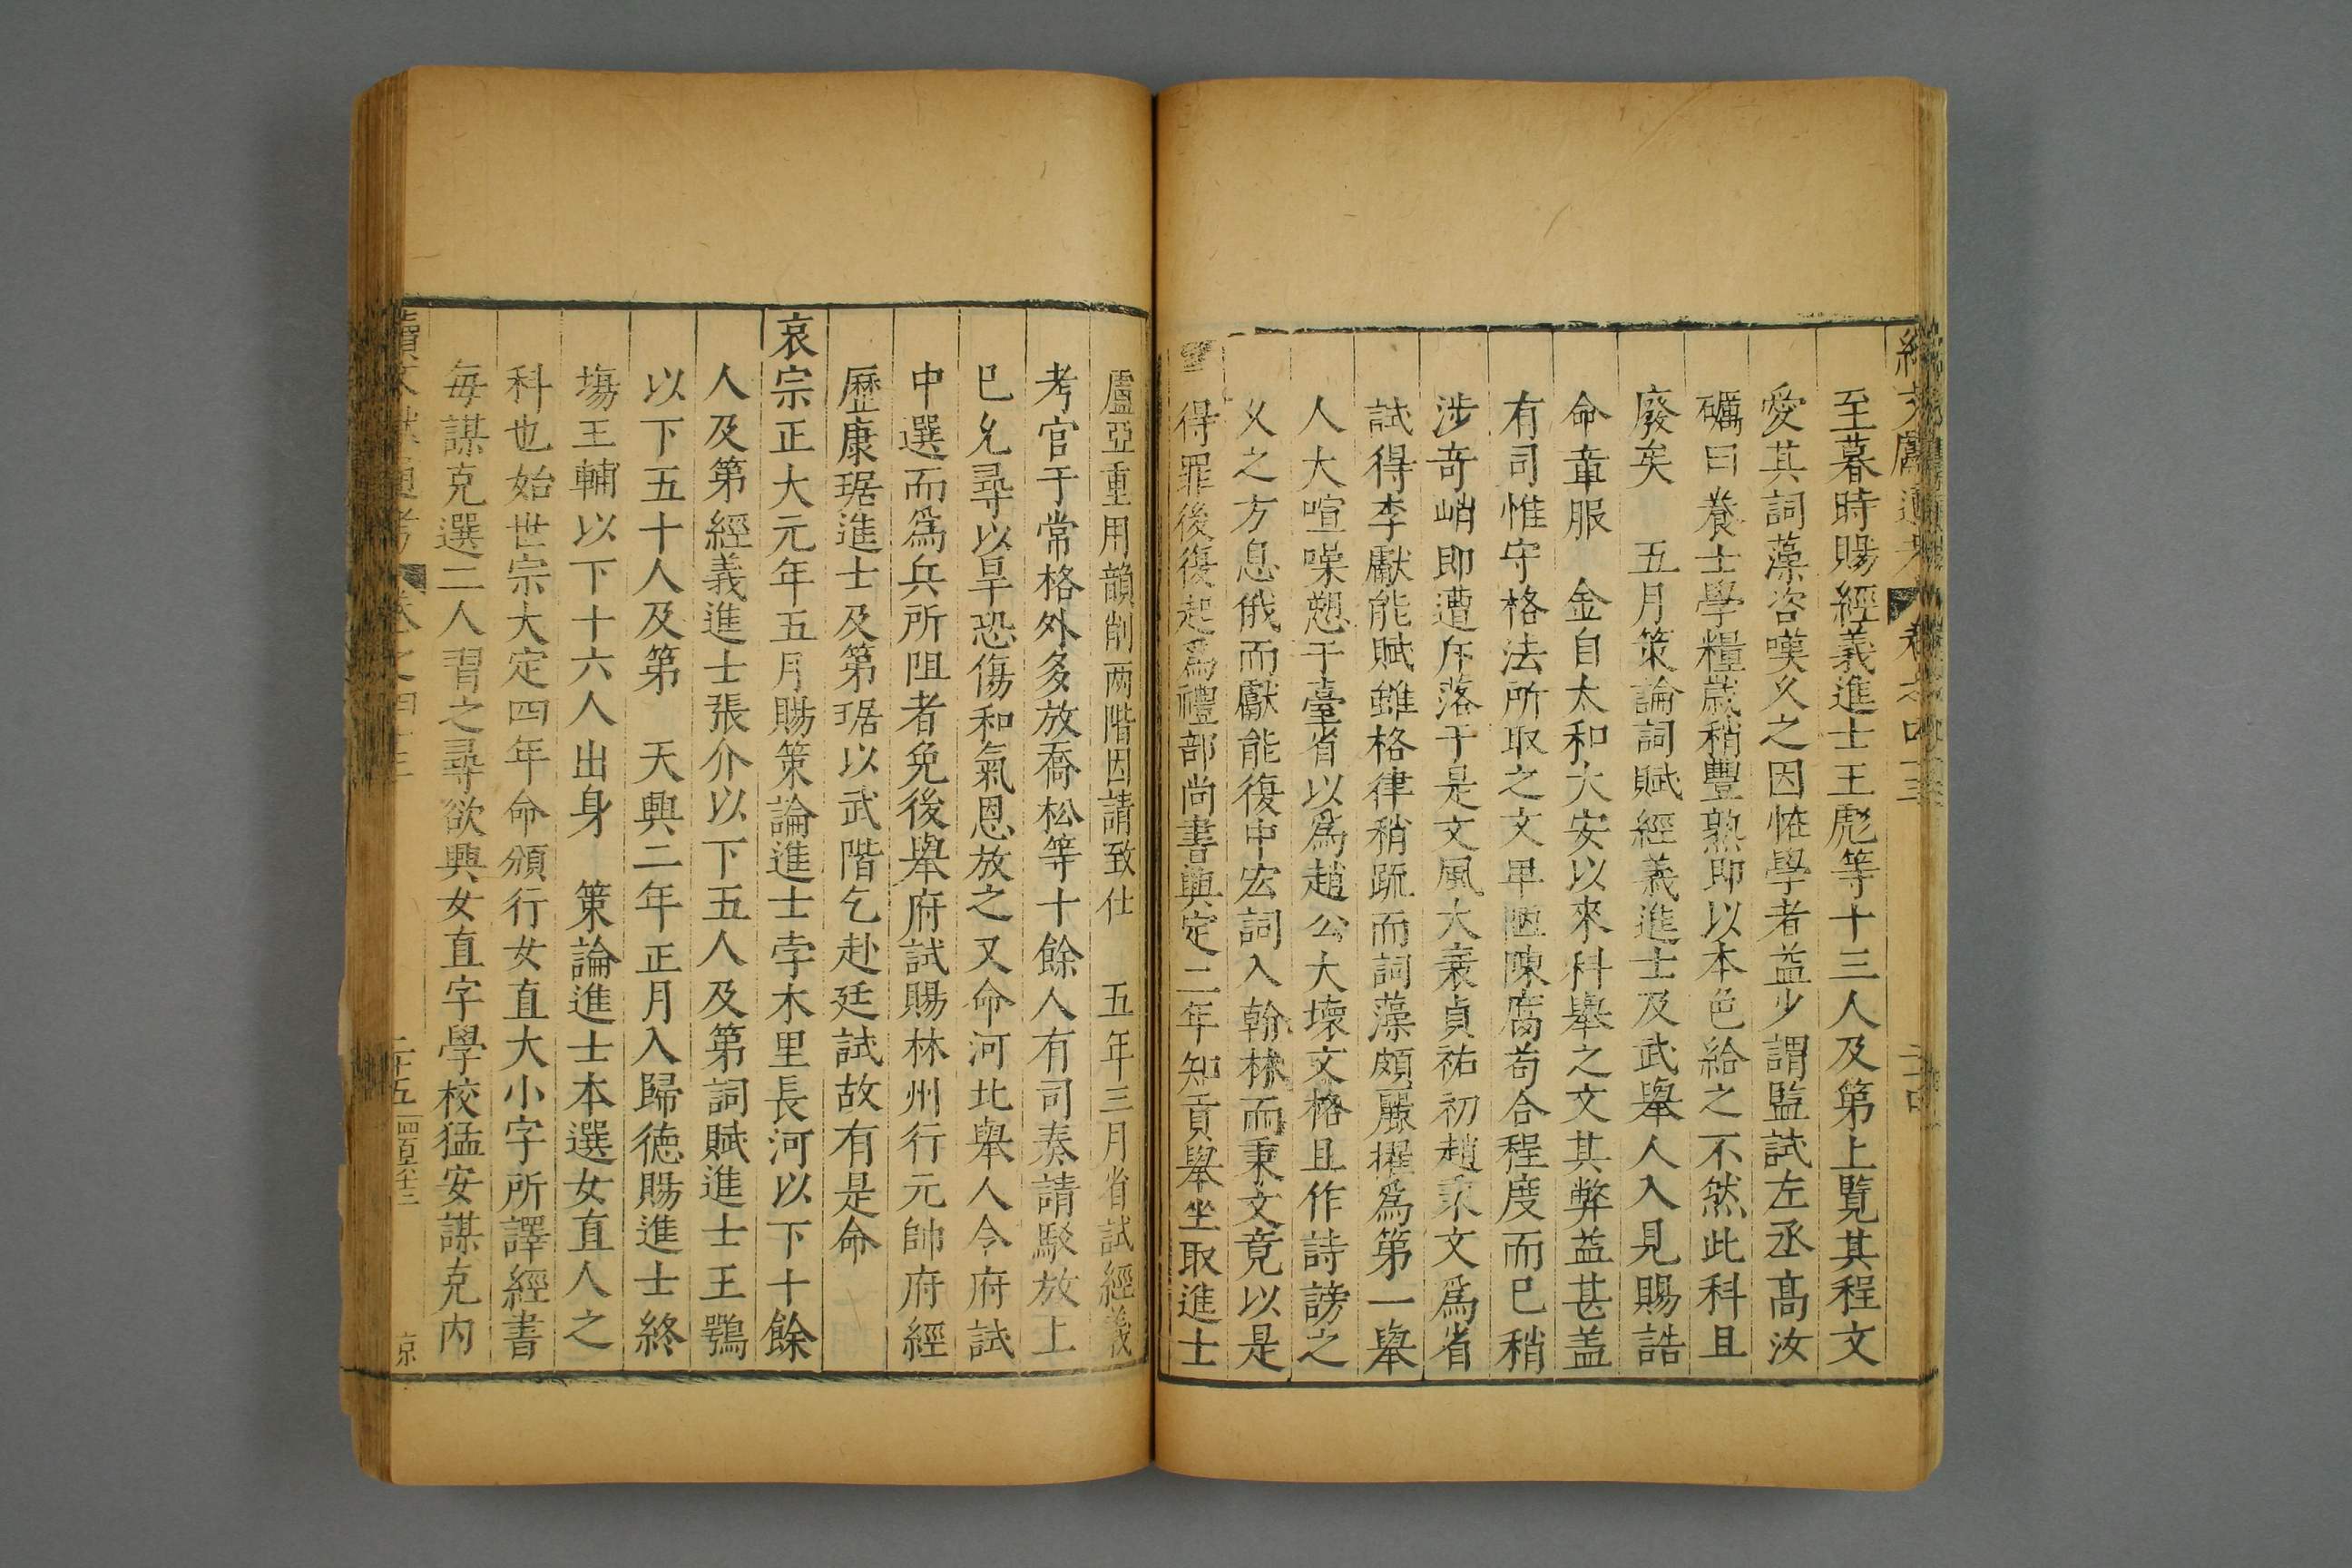 至暮時賜經義進士王彪等十三人及第上覽其程文
愛其詞藻咨嘆久之因恠學者益少謂監試左丞髙汝
礪曰養士學糧歲稍豐熟即以本色給之不然此科且
廢矣　五月策論詞賦經義進士及武舉人入見賜誥
命章服　金自太和大安以來科舉之文其弊益甚盖
有司惟守格法所取之文卑陋陳腐苟合程度而已稍
涉奇峭即遭斥落于是文風大衰貞祐初趙秉文爲省
試得李獻能賦雖格律稍疏而詞藻頗麗擢爲第一舉
人大喧噪愬于臺省以爲趙公大壞文格且作詩謗之
乆之方息俄而獻能復中宏詞入翰林而秉文竟以是
得罪後復起爲禮部尚書興定二年知貢舉坐取進士
盧亞重用韻削两階因請致仕　五年三月省試經義
考官于常格外多放喬松等十餘人有司奏請駁放上
已允尋以旱恐傷和氣恩放之又命河北舉人今府試
中選而爲兵所阻者免後舉府試賜林州行元帥府經
歷康琚進士及第琚以武階乞赴廷試故有是命
哀宗正大元年五月賜策論進士孛木里長河以下十餘
人及第經義進士張介以下五人及第詞賦進士王鶚
以下五十人及第　天興二年正月入歸徳賜進士終
塲王輔以下十六人出身　策論進士本選女直人之
科也始世宗大定四年命頒行女直大小字所譯經書
每謀克選二人習之尋欲興女直字學校猛安謀克内
二十五